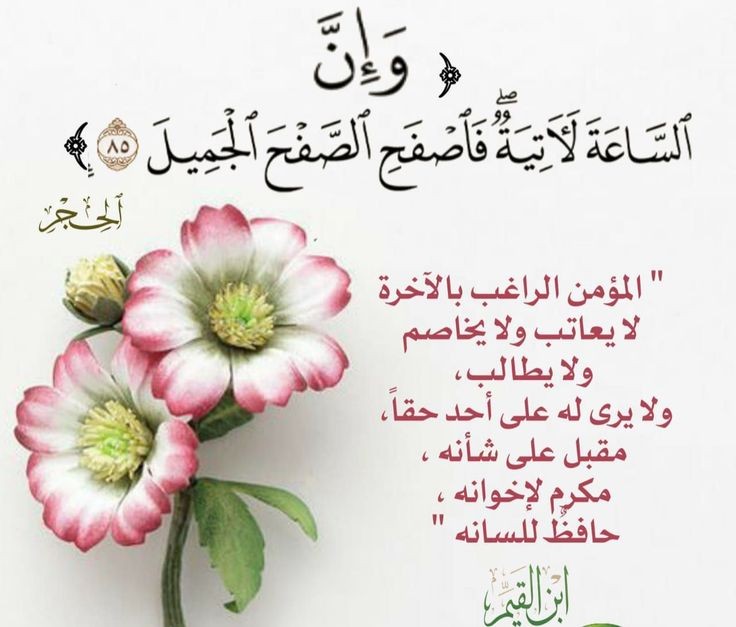 ﴿ وَإِنَّ
ٱلسَّاعَةَ لَـَٔاتِيَةٌۖ فَٱصْفَحِ ٱلصَّفْحَ ٱلْجَمِيلَ ٨٥ ﴾
ٱلحِجْرِ
" المؤمن الراغب بالآخرة
لا يعاتب ولا يخاصم
ولا يطالب،
ولا يرى له على أحد حقاً،
مقبل على شأنه ،
مكرم لإخوانه ،
حافظٌ للسانه "
ابن القيّم